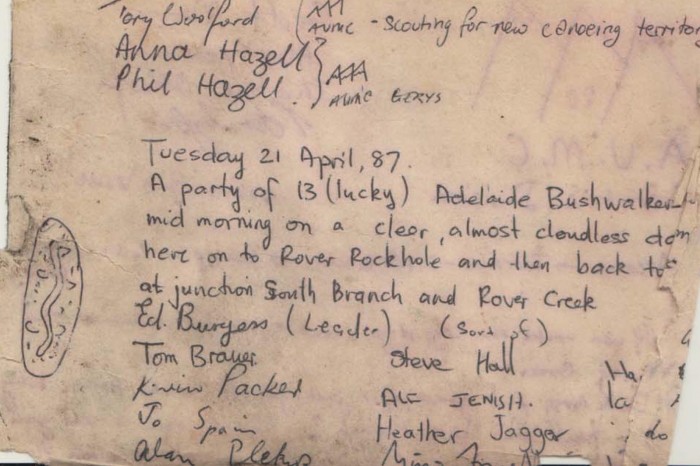 Tony Woolford
AUMC - scouting for new canoeing
Anna Hazell
Phil Hazell.
AUMC
Tuesday 21 April, 87.
A party of 13 (lucky) Adelaide
mid morning on a clear, almost cloudless
here on to Rover Rockhole and then back to
at junction South Branch and Rover Creek
Ed. Burgess (Leader) (sort of)
Tom Brauer Steve Hall
Kevin Packer ALF JENISH.
Jo Spain Heather Jagger
Alan